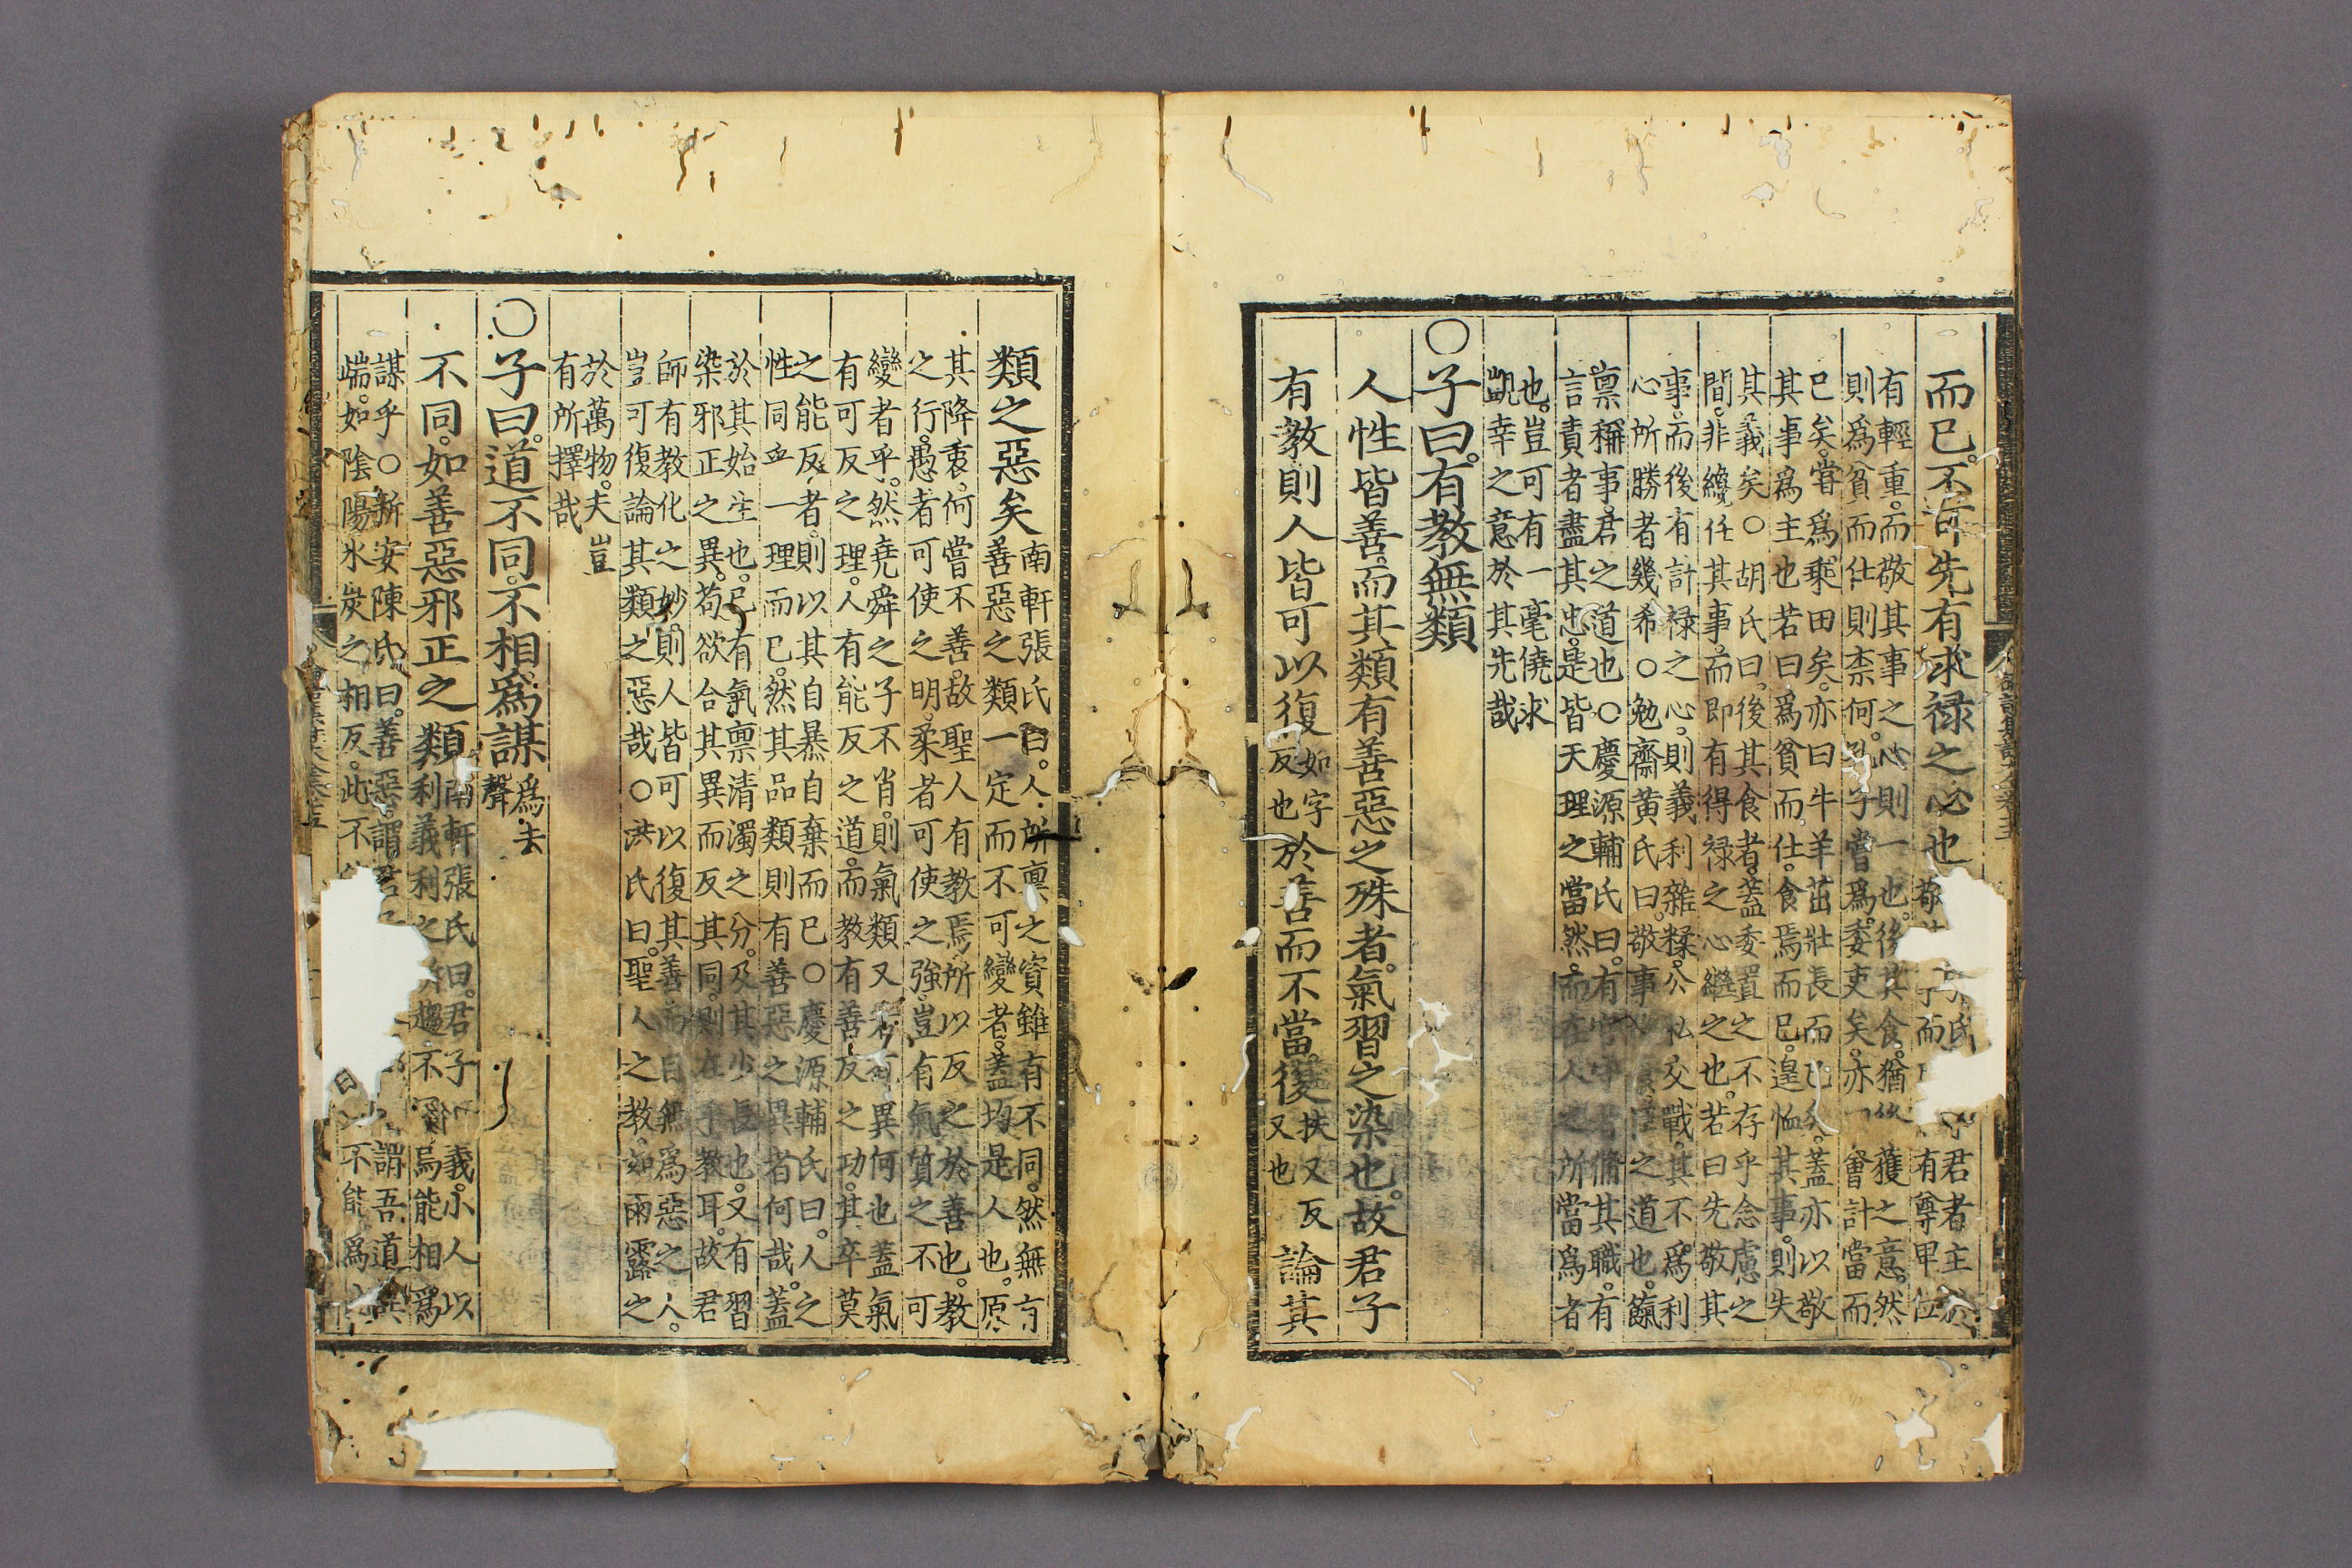 而已。不可先有求禄之心也
君者主於
有尊卑位
有輕重。而敬其事之心則一也。後其食。猶後獲之意。然
則爲貧而仕則柰何。孔子嘗爲委吏矣。亦曰會計當而
已矣。嘗爲乘田矣。亦曰牛羊茁壯長而已矣。蓋亦以敬
其事爲主也若曰爲貧而仕。食焉而已。遑恤其事。則失
其義矣○胡氏曰。後其食者。蓋委置之不存乎念慮之
間。非纔任其事。而即有得禄之心繼之也。若曰先敬其
事。而後有計禄之心。則義利雜糅。公私交戰。其不爲利
心所勝者幾希○勉齋黄氏曰。敬事之道也。餼
禀稱事。君之道也○慶源輔氏曰。有官守者脩其職。有
言責者盡其忠。是皆天理之當然。而在人之所當爲者
也。豈可有一毫僥求
覬幸之意於其先哉
○子曰。有教無類
人性皆善。而其類有善惡之殊者。氣習之染也。故君子
有教則人皆可以復
如字
反也
於善而不當復
扶又反
又也
論其
類之惡矣
南軒張氏曰。人所禀之資雖有不同。然無有
善惡之類一定而不可變者。蓋均是人也。原
其降衷。何嘗不善。故聖人有教焉。所以反之於善也。教
之行。愚者可使之明。柔者可使之強。豈有氣質之不可
變者乎。然堯舜之子不肖。則氣類又不可異何也蓋氣
有可反之理。人有能反之道。而教有善反之功。其卒莫
之能反者。則以其自暴自棄而已○慶源輔氏曰。人之
性同乎一理而已。然其品類則有善惡之異者何哉。蓋
於其始生也。已有氣禀清濁之分。及其少長也。又有習
染邪正之異。苟欲合其異而反其同。則在乎教耳。故君
師有教化之妙。則人皆可以復其善而自無爲惡之人。
豈可復論其類之惡哉○洪氏曰。聖人之教。如雨露之
於萬物。夫豈
有所擇哉
○子曰。道不同。不相爲謀
爲去
聲
不同。如善惡邪正之類
南軒張氏曰。君子義。小人以
利義利之趣不同。烏能相爲
謀乎○新安陳氏曰。善惡。謂君謂吾道異
端。如陰陽氷炭之相反。此不不能爲